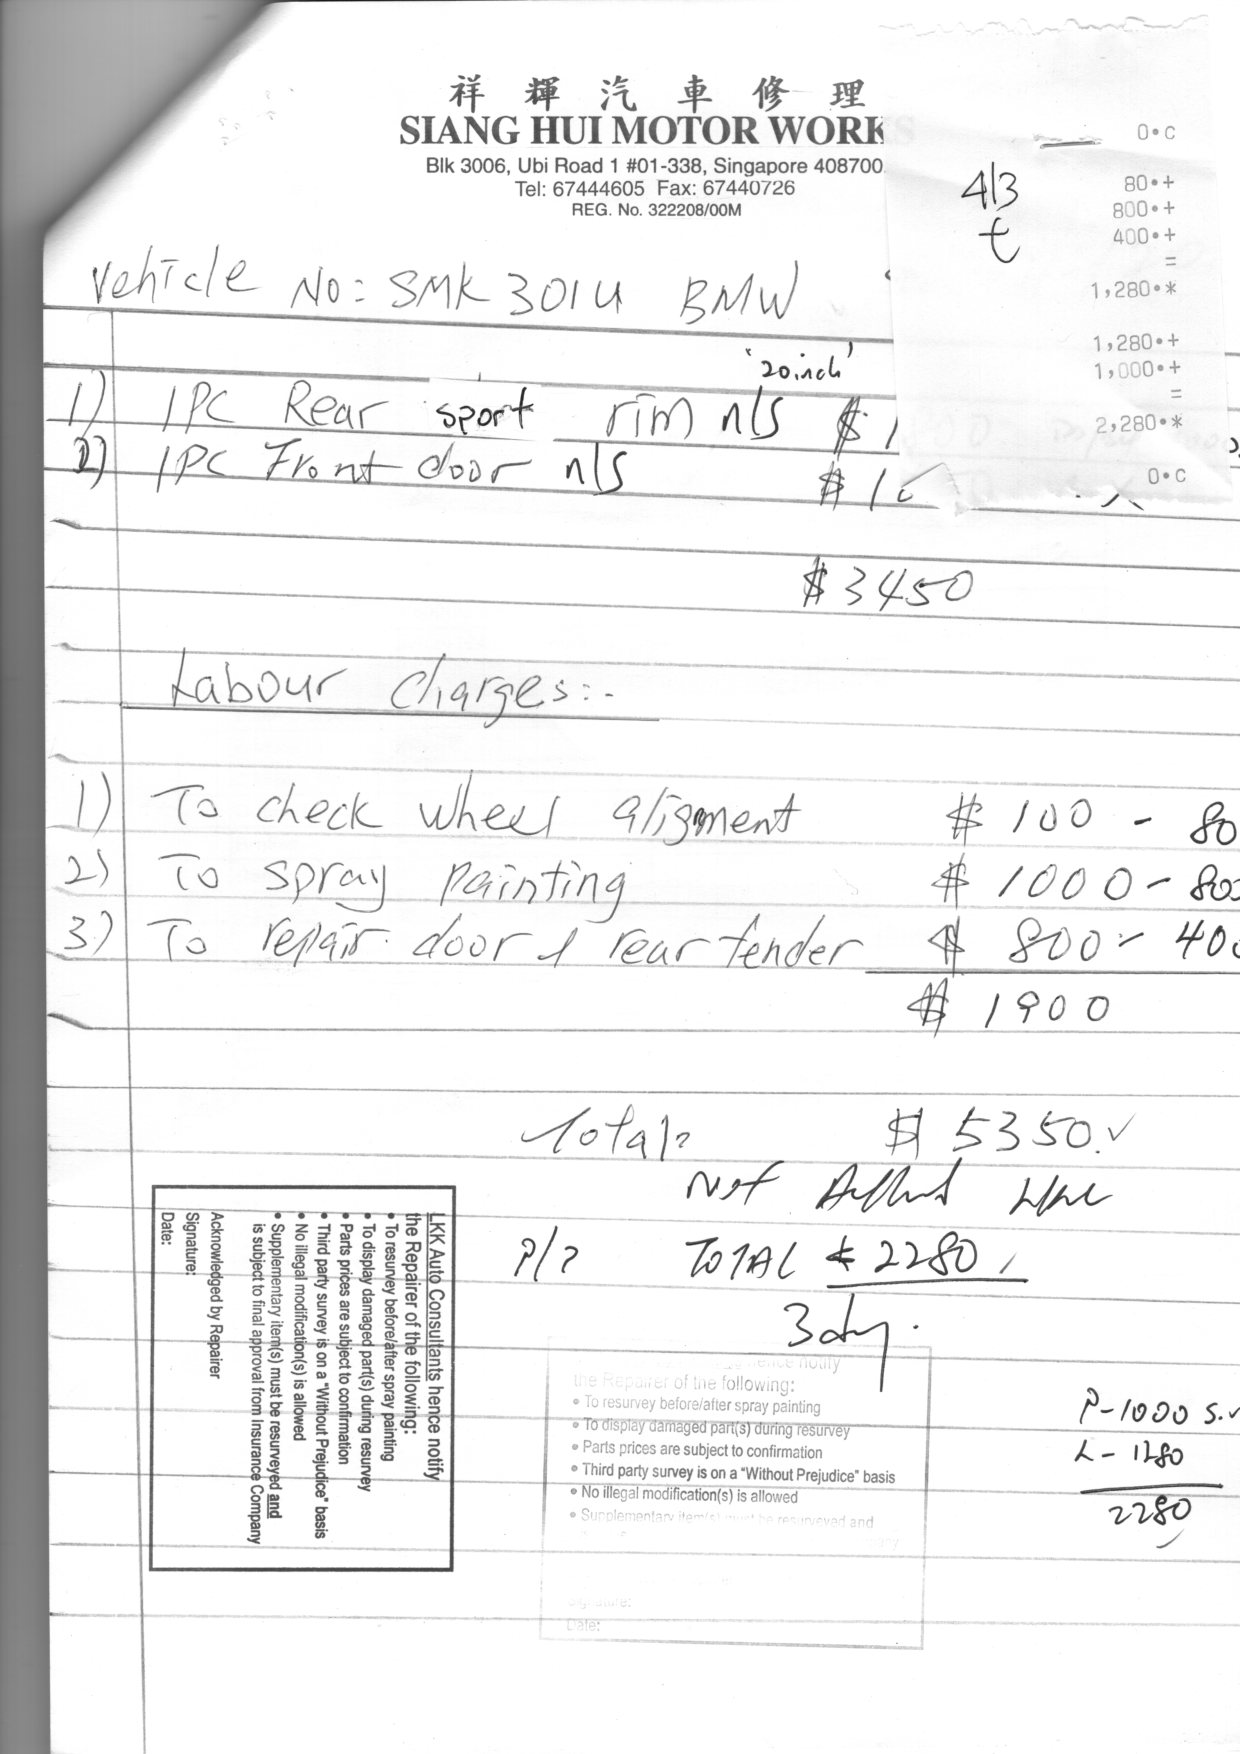 祥輝汽車修理
SIANG HUI MOTOR WORKS
Blk 3006, Ubi Road 1 #01-338, Singapore 408700
Tel: 67444605 Fax: 67440726
REG. No. 322208/00M
0•C
4/3
80•+
800•+
400•+
=
1,280•*
1,280•+
1,000•+
=
2,280•*
0•C
Vehicle No: SMK 301U BMW
'20inch'
1) 1PC Rear sport rim n/s $ 1
2) 1PC Front door n/s $ 1
$ 3450
Labour Charges:-
1) To check wheel aligment $ 100 - 80
2) To spray painting $ 1000 - 800
3) To repair door & rear fender $ 800 - 400
$ 1900
Total: $ 5350
TOTAL 2280
3 day.
P-1000
L-1280
2280
LKK Auto Consultants hence notify
the Repairer of the following:
• To resurvey before/after spray painting
• To display damaged part(s) during resurvey
• Parts prices are subject to confirmation
• Third party survey is on a "Without Prejudice" basis
• No illegal modification(s) is allowed
• Supplementary item(s) must be resurveyed and
is subject to final approval from Insurance Company
Acknowledged by Repairer
Signature:
Date:
hence notify
the Repairer of the following:
• To resurvey before/after spray painting
• To display damaged part(s) during resurvey
• Parts prices are subject to confirmation
• Third party survey is on a "Without Prejudice" basis
• No illegal modification(s) is allowed
• Supplementary item(s) must be resurveyed and
Signature:
Date: